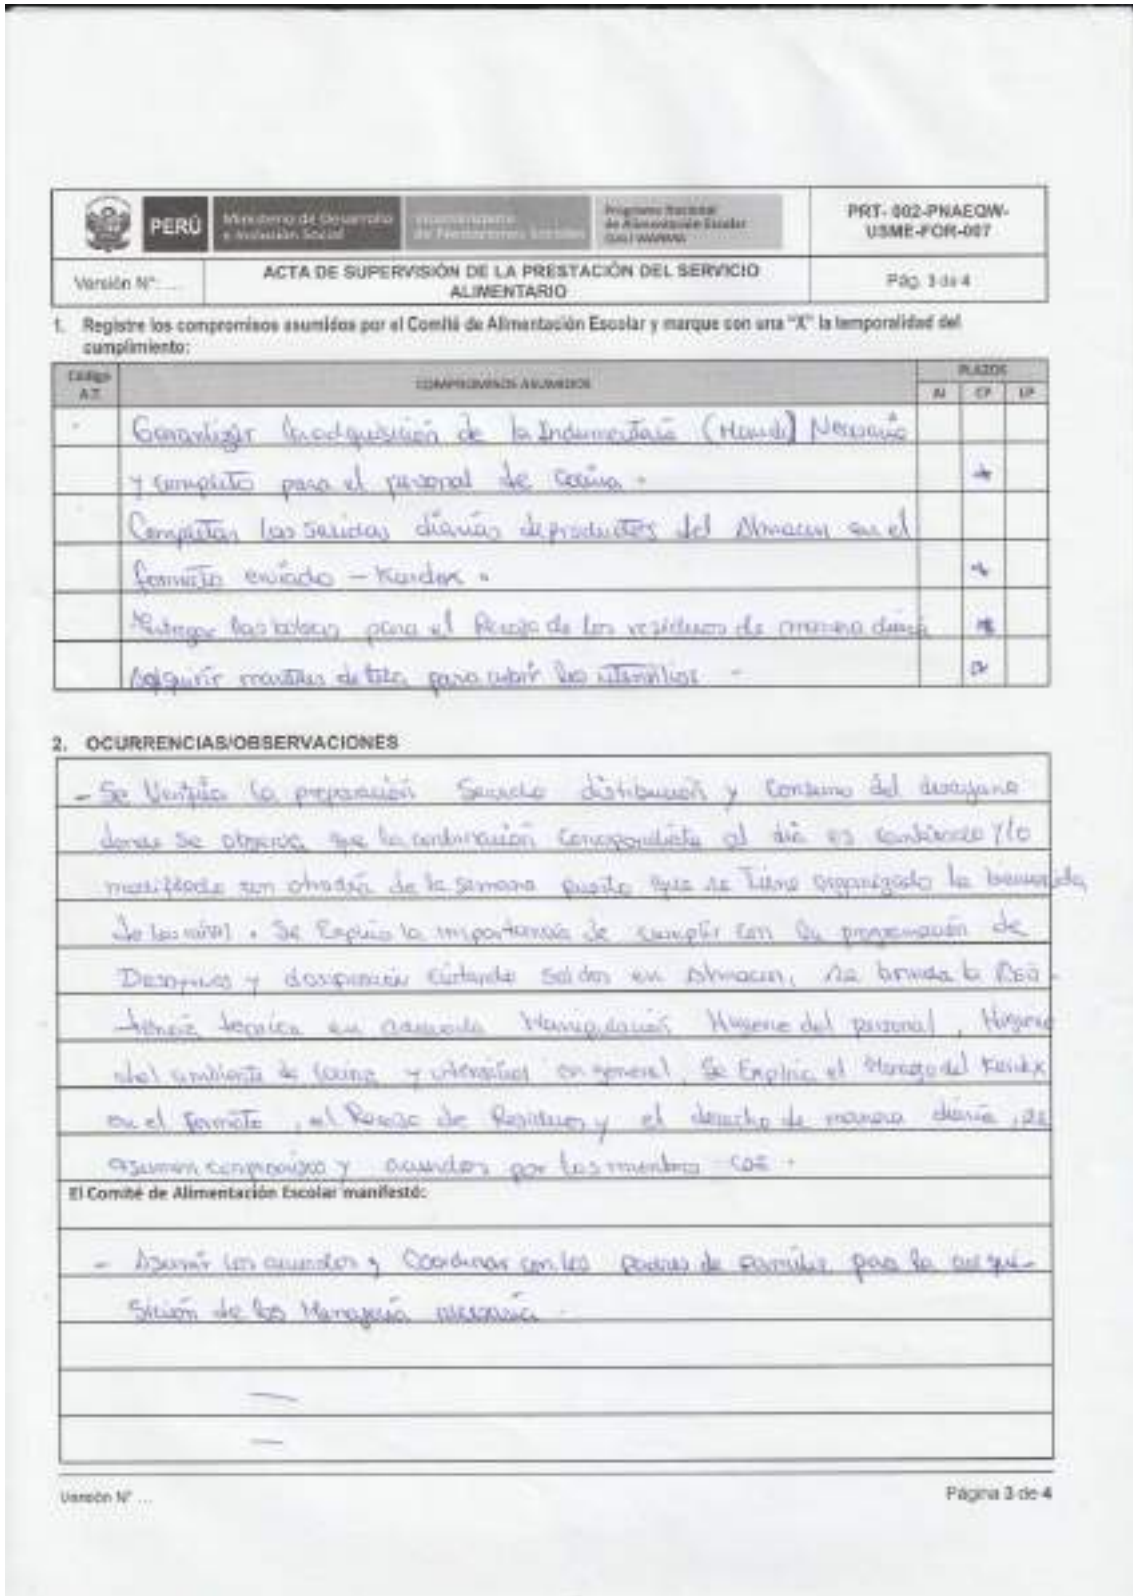 PERÚ
Ministerio de Desarrollo
e Inclusión Social
Viceministerio
de Prestaciones Sociales
Programa Nacional
de Alimentación Escolar
QALI WARMA
PRT- 002-PNAEQW-
USME-FOR-007
Versión N°: ...
ACTA DE SUPERVISIÓN DE LA PRESTACIÓN DEL SERVICIO
ALIMENTARIO
Pág. 3 de 4
1. Registre los compromisos asumidos por el Comité de Alimentación Escolar y marque con una "X" la temporalidad del
cumplimiento:
Código
A.T.
COMPROMISOS ASUMIDOS
PLAZOS
AI CP LP
Garantizar la adquisición de la Indumentaria ( ) Necesario
y completo para el personal de cocina .
Completar las salidas diarias de productos del Almacen en el
formato enviado - Kardex .
para el Recojo de los residuos de manera diaria
manteles de tela para cubrir los utensilios -
2. OCURRENCIAS/OBSERVACIONES
- Se Verifica la preparación Servido distribución y Consumo del desayuno
donde se observa que la combinación correspondiente al dia es cambiado y/o
modificado con otro dia de la semana puesto que se tiene organizado la bienvenida
de los niños . Se Explica la importancia de cumplir con la programación de
Desayunos y dosificación evitando saldos en Almacen, se brinda la Asis-
tencia tecnica en adecuada Manipulación Higiene del personal, Higiene
del ambiente de cocina y utensilios en general, Se Explica el Manejo del Kardex
en el formato, el Recojo de Residuos y el de manera diaria, se
asumen compromisos y acuerdos por los miembros CAE .
El Comité de Alimentación Escolar manifestó:
- Asumir los acuerdos y Coordinar con los padres de familia para la adqui-
sición de los necesaria
Versión N° ...
Página 3 de 4